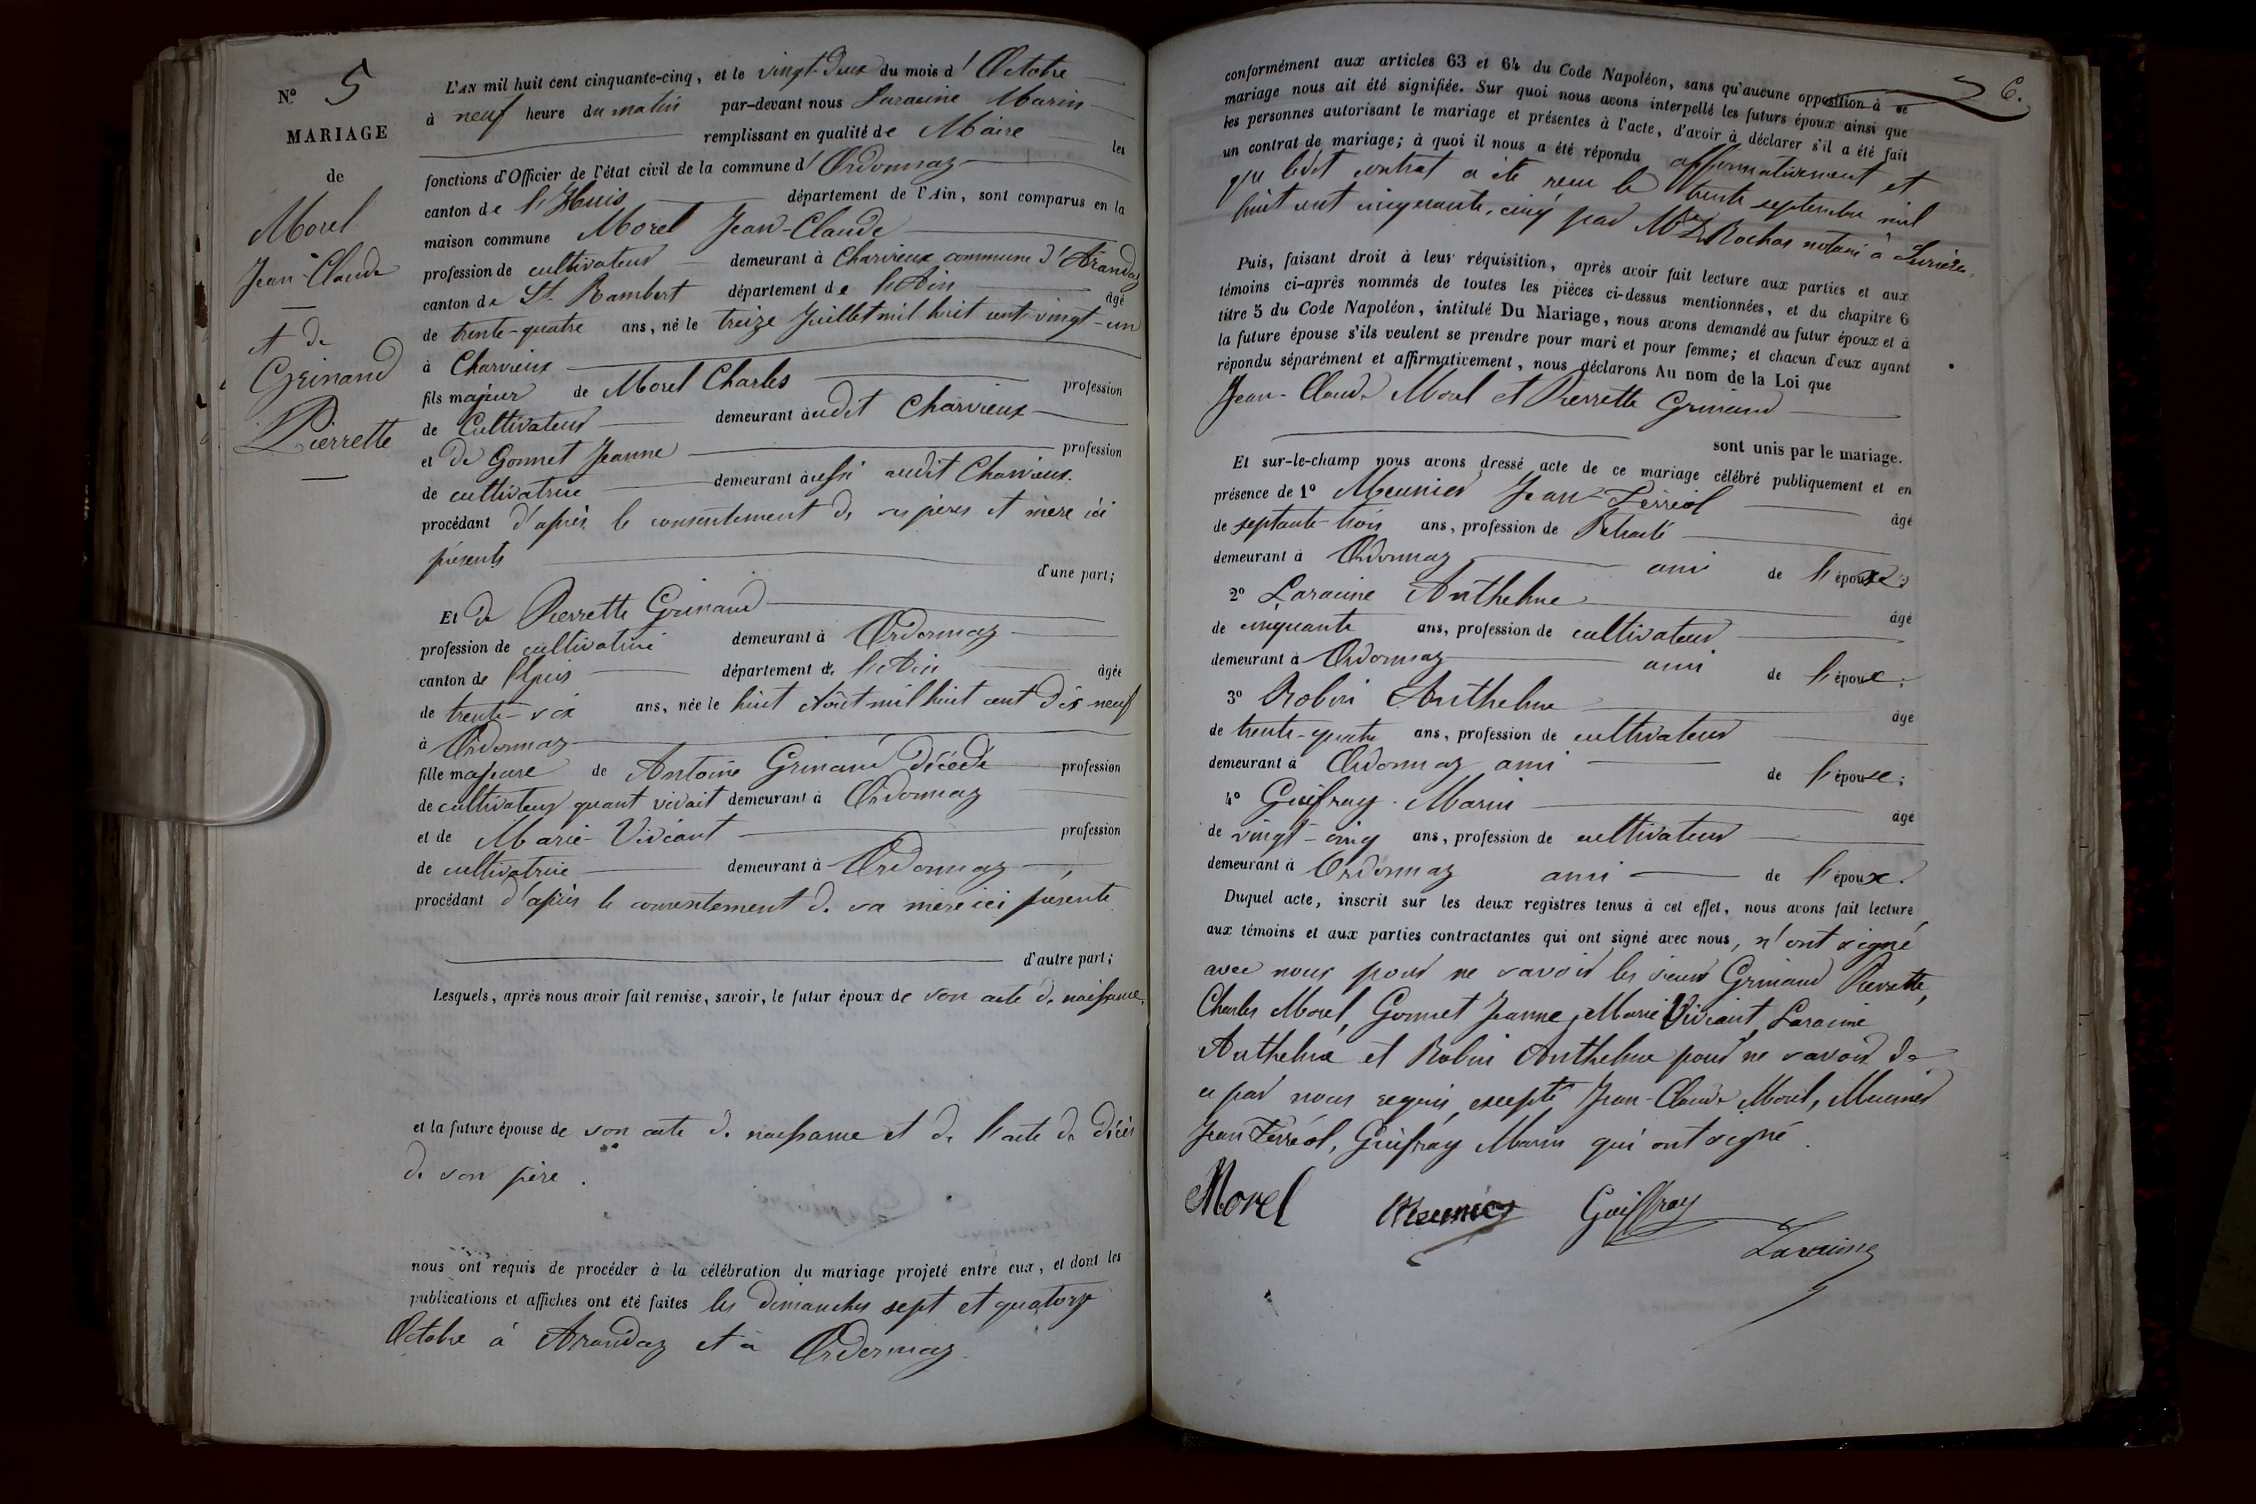 N.º 5
MARIAGE
de
Morel
Jean-Claude
et de
Grinand
Pierrette
L'AN mil huit cent cinquante-cinq, et le vingt-deux du mois d'Octobre
à neuf heure du matin par-devant nous Laracine Marin
remplissant en qualité de Maire les
fonctions d'Officier de l'état civil de la commune d'Ordonnaz
canton de l'Huis département de l'Ain, sont comparus en la
maison commune Morel Jean-Claude
profession de cultivateur demeurant à Charvieux commune d'Arandaz
canton de St. Rambert département de l'Ain âgé
de trente-quatre ans, né le treize Juillet mil huit cent vingt-un
à Charvieux
fils majeur de Morel Charles profession
de Cultivateur demeurant audit Charvieux
et de Gonnet Jeanne profession
de cultivatrice demeurant aussi audit Charvieux.
procédant d'après le consentement de ses pères et mère ici
présents
d'une part;
Et de Pierrette Grinand
profession de cultivatrice demeurant à Ordonnaz
canton de l'huis département de l'Ain âgée
de trente-six ans, née le huit Août mil huit cent dix-neuf
à Ordonnaz
fille majeure de Antoine Grinand décédé profession
de cultivateur quant vivait demeurant à Ordonnaz
et de Marie Viviant profession
de cultivatrice demeurant à Ordonnaz,
procédant d'après le consentement de sa mère ici présente
d'autre part;
Lesquels, après nous avoir fait remise, savoir, le futur époux de son acte de naissance,
et la future épouse de son acte de naissance et de l'acte de décès
de son père.
nous ont requis de procéder à la célébration du mariage projeté entre eux, et dont les
publications et affiches ont été faites les dimanches sept et quatorze
Octobre à Arandaz et à Ordonnaz.
6.
conformément aux articles 63 et 64 du Code Napoléon, sans qu'aucune opposition à ce
mariage nous ait été signifiée. Sur quoi nous avons interpellé les futurs époux ainsi que
les personnes autorisant le mariage et présentes à l'acte, d'avoir à déclarer s'il a été fait
un contrat de mariage; à quoi il nous a été répondu affirmativement et
qu ledit contrat a été recu le trente septembre mil
huit cent cinquante-cinq par Me Rochas notaire à
Puis, faisant droit à leur réquisition, après avoir fait lecture aux parties et aux
témoins ci-après nommés de toutes les pièces ci-dessus mentionnées, et du chapitre 6
titre 5 du Code Napoléon, intitulé Du Mariage, nous avons demandé au futur époux et à
la future épouse s'ils veulent se prendre pour mari et pour femme; et chacun d'eux ayant
répondu séparément et affirmativement, nous déclarons Au nom de la Loi que
Jean-Claude Morel et Pierrette Grinand
sont unis par le mariage.
Et sur-le-champ nous avons dressé acte de ce mariage célébré publiquement et en
présence de 1º Meunier Jean-Ferréol âgé
de septante-trois ans, profession de Retraité
demeurant à Ordonnaz ami de l'époux;
2º Laracine Anthelme âgé
de cinquante ans, profession de cultivateur
demeurant à Ordonnaz ami de l'époux;
3º Robin Anthelme âgé
de trente-quatre ans, profession de cultivateur
demeurant à Ordonnaz ami de l'épouse;
4º Guifray Marin âgé
de vingt-cinq ans, profession de cultivateur
demeurant à Ordonnaz ami de l'époux.
Duquel acte, inscrit sur les deux registres tenus à cet effet, nous avons fait lecture
aux témoins et aux parties contractantes qui ont signé avec nous, n'ont signé
avec nous pour ne savoir les sieurs Grinand Pierrette,
Charles Morel, Gonnet Jeanne, Marie Viviant, Laracine
Anthelme et Robin Anthelme pour ne savoir de
ce par nous requis, excepté Jean-Claude Morel, Meunier
Jean Ferréol, Guifray Marin qui ont signé.
Morel Meunier Guiffray
Laracine